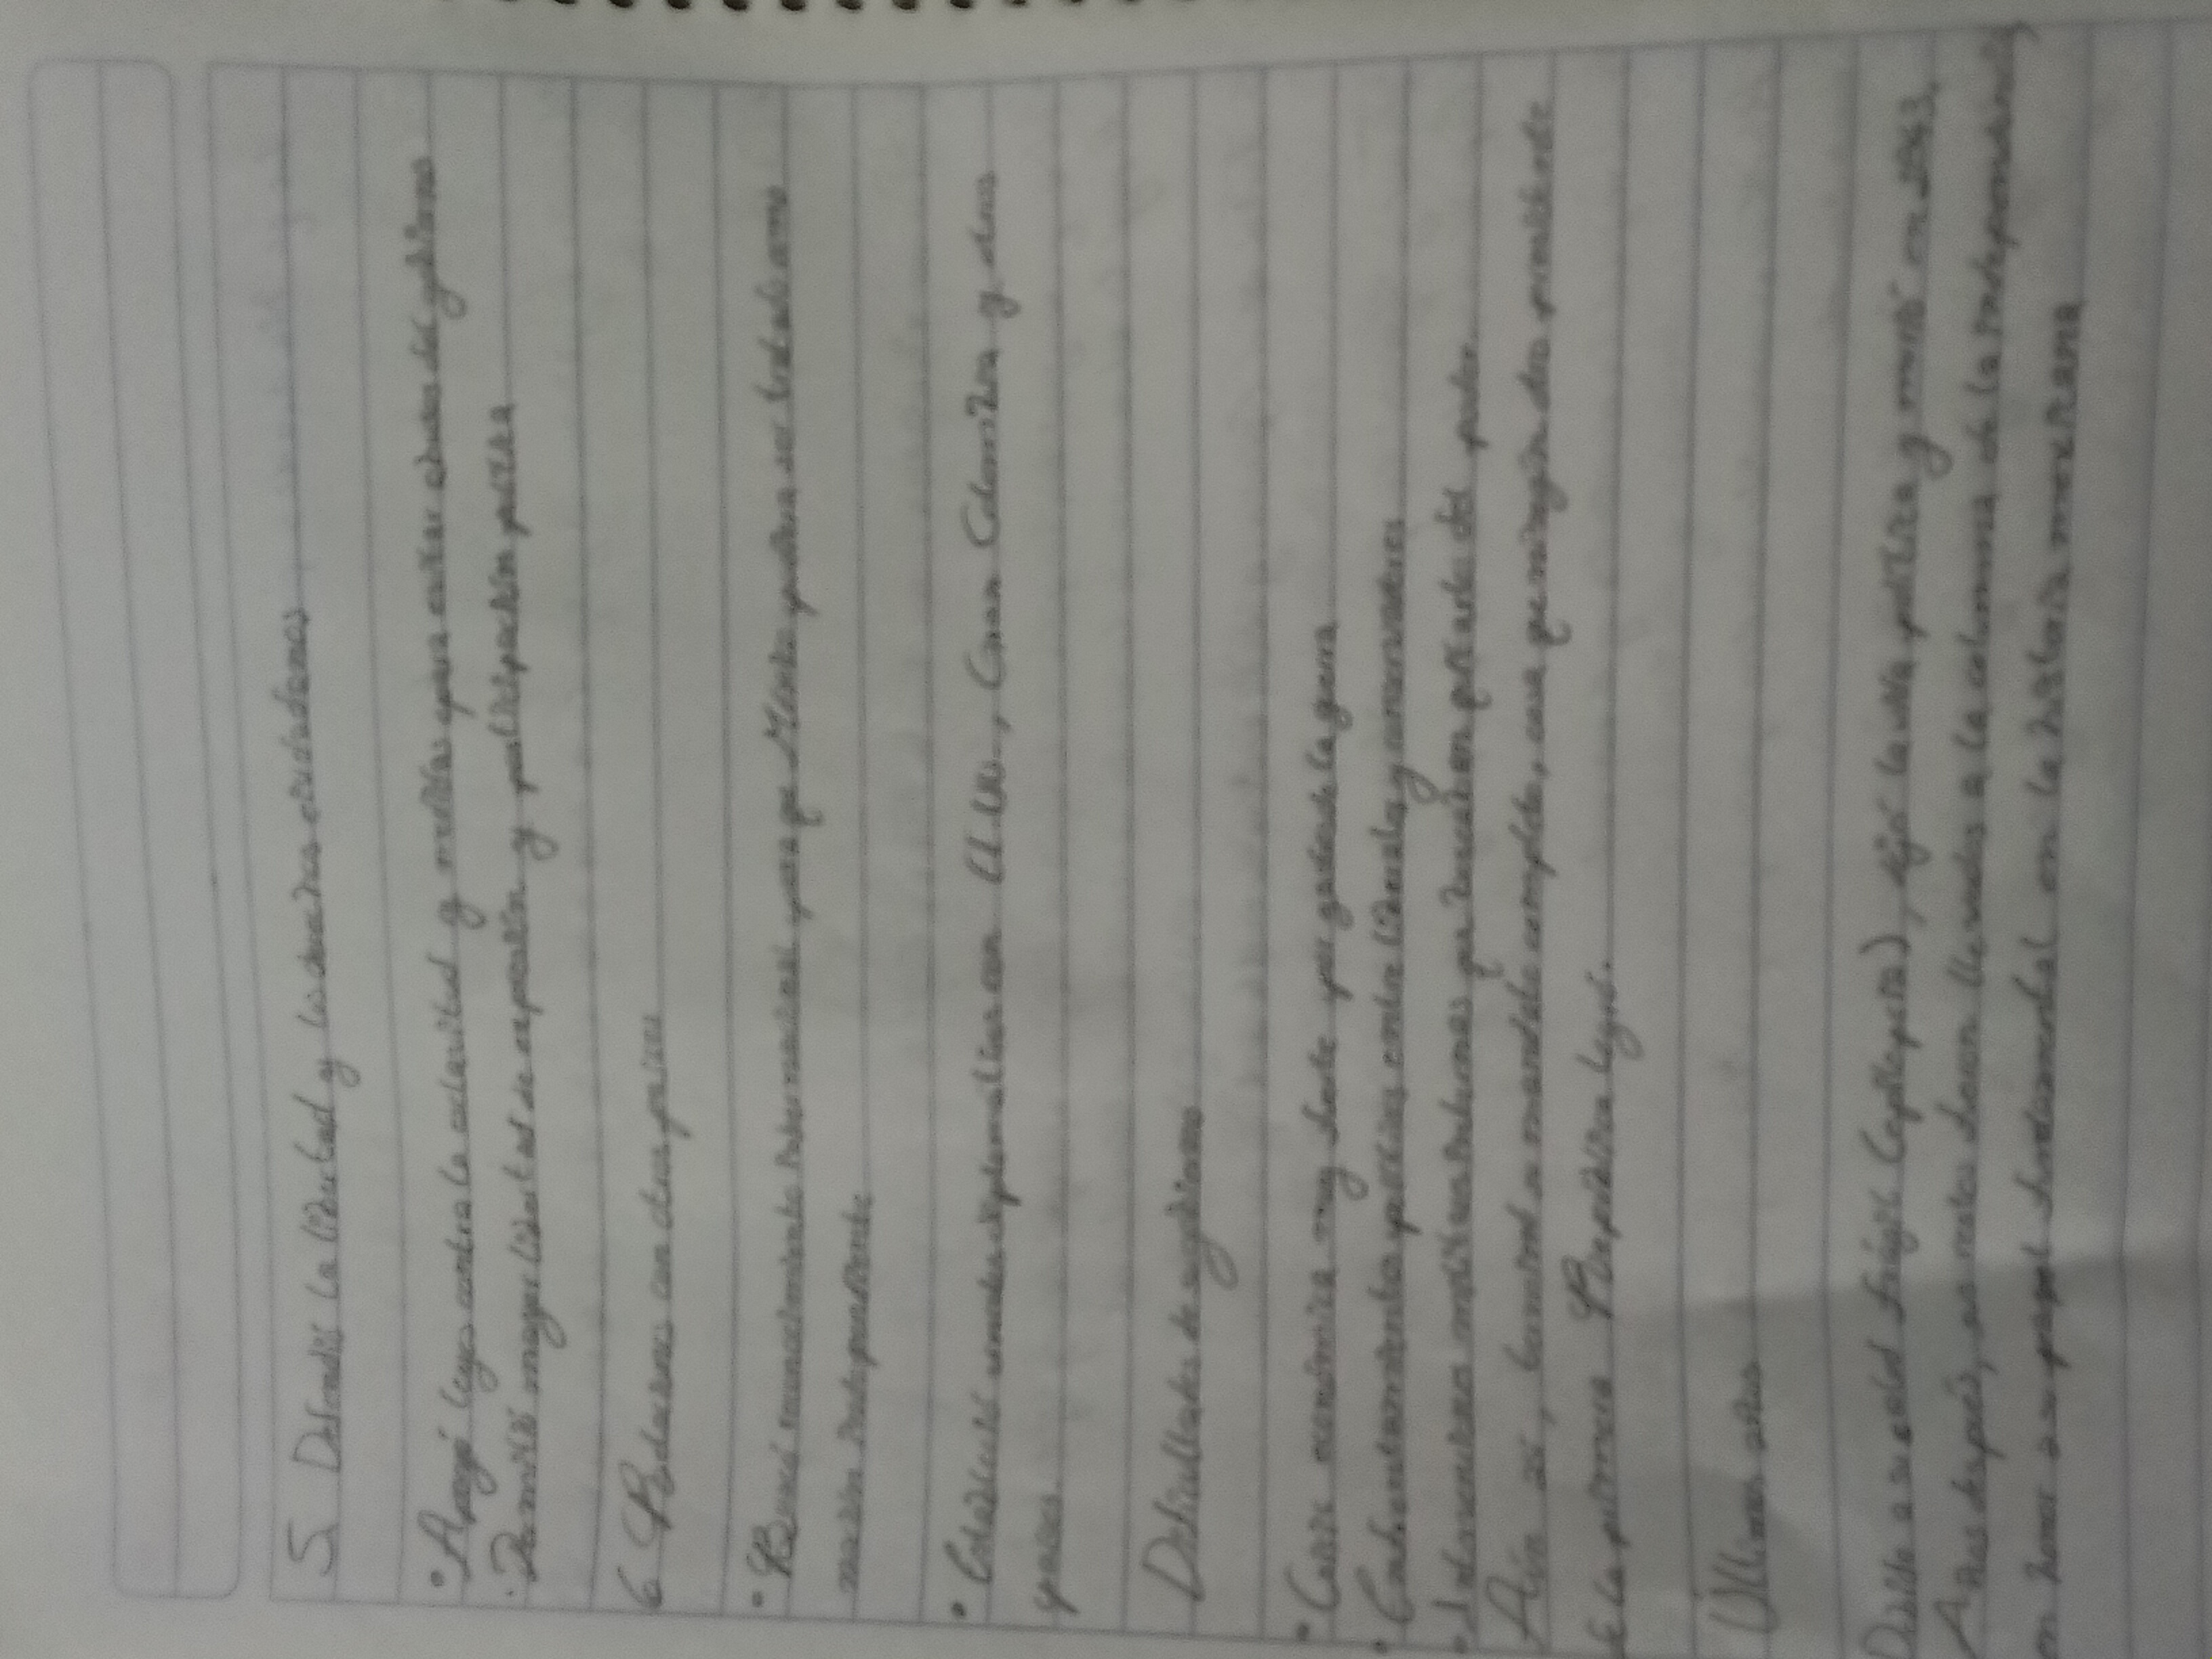 5 Defendió la libertad y los derechos ciudadanos
• Apoyó leyes contra la esclavitud y medidas para evitar abusos del gobierno
• Permitió mayor libertad de expresión y participación política
6 Relaciones con otros países
• Buscó reconocimiento internacional para que México pudiera ser tratado como
nación independiente
• Estableció acuerdos diplomáticos con EE.UU., Gran Colombia y otros
países
Dificultades de su gobierno
• Crisis económica muy fuerte por gastos de la guerra
• Enfrentamientos políticos entre liberales y conservadores
• Intervenciones militares internas que buscaban quitarle el poder.
Aún así, terminó su mandato completo, cosa que ningún otro presidente
de la primera República logró.
Últimos años
Debido a su salud frágil (epilepsia), dejó la vida política y murió en 1843.
Años después, sus restos fueron llevados a la columna de la independencia,
en honor a su papel fundamental en la historia mexicana